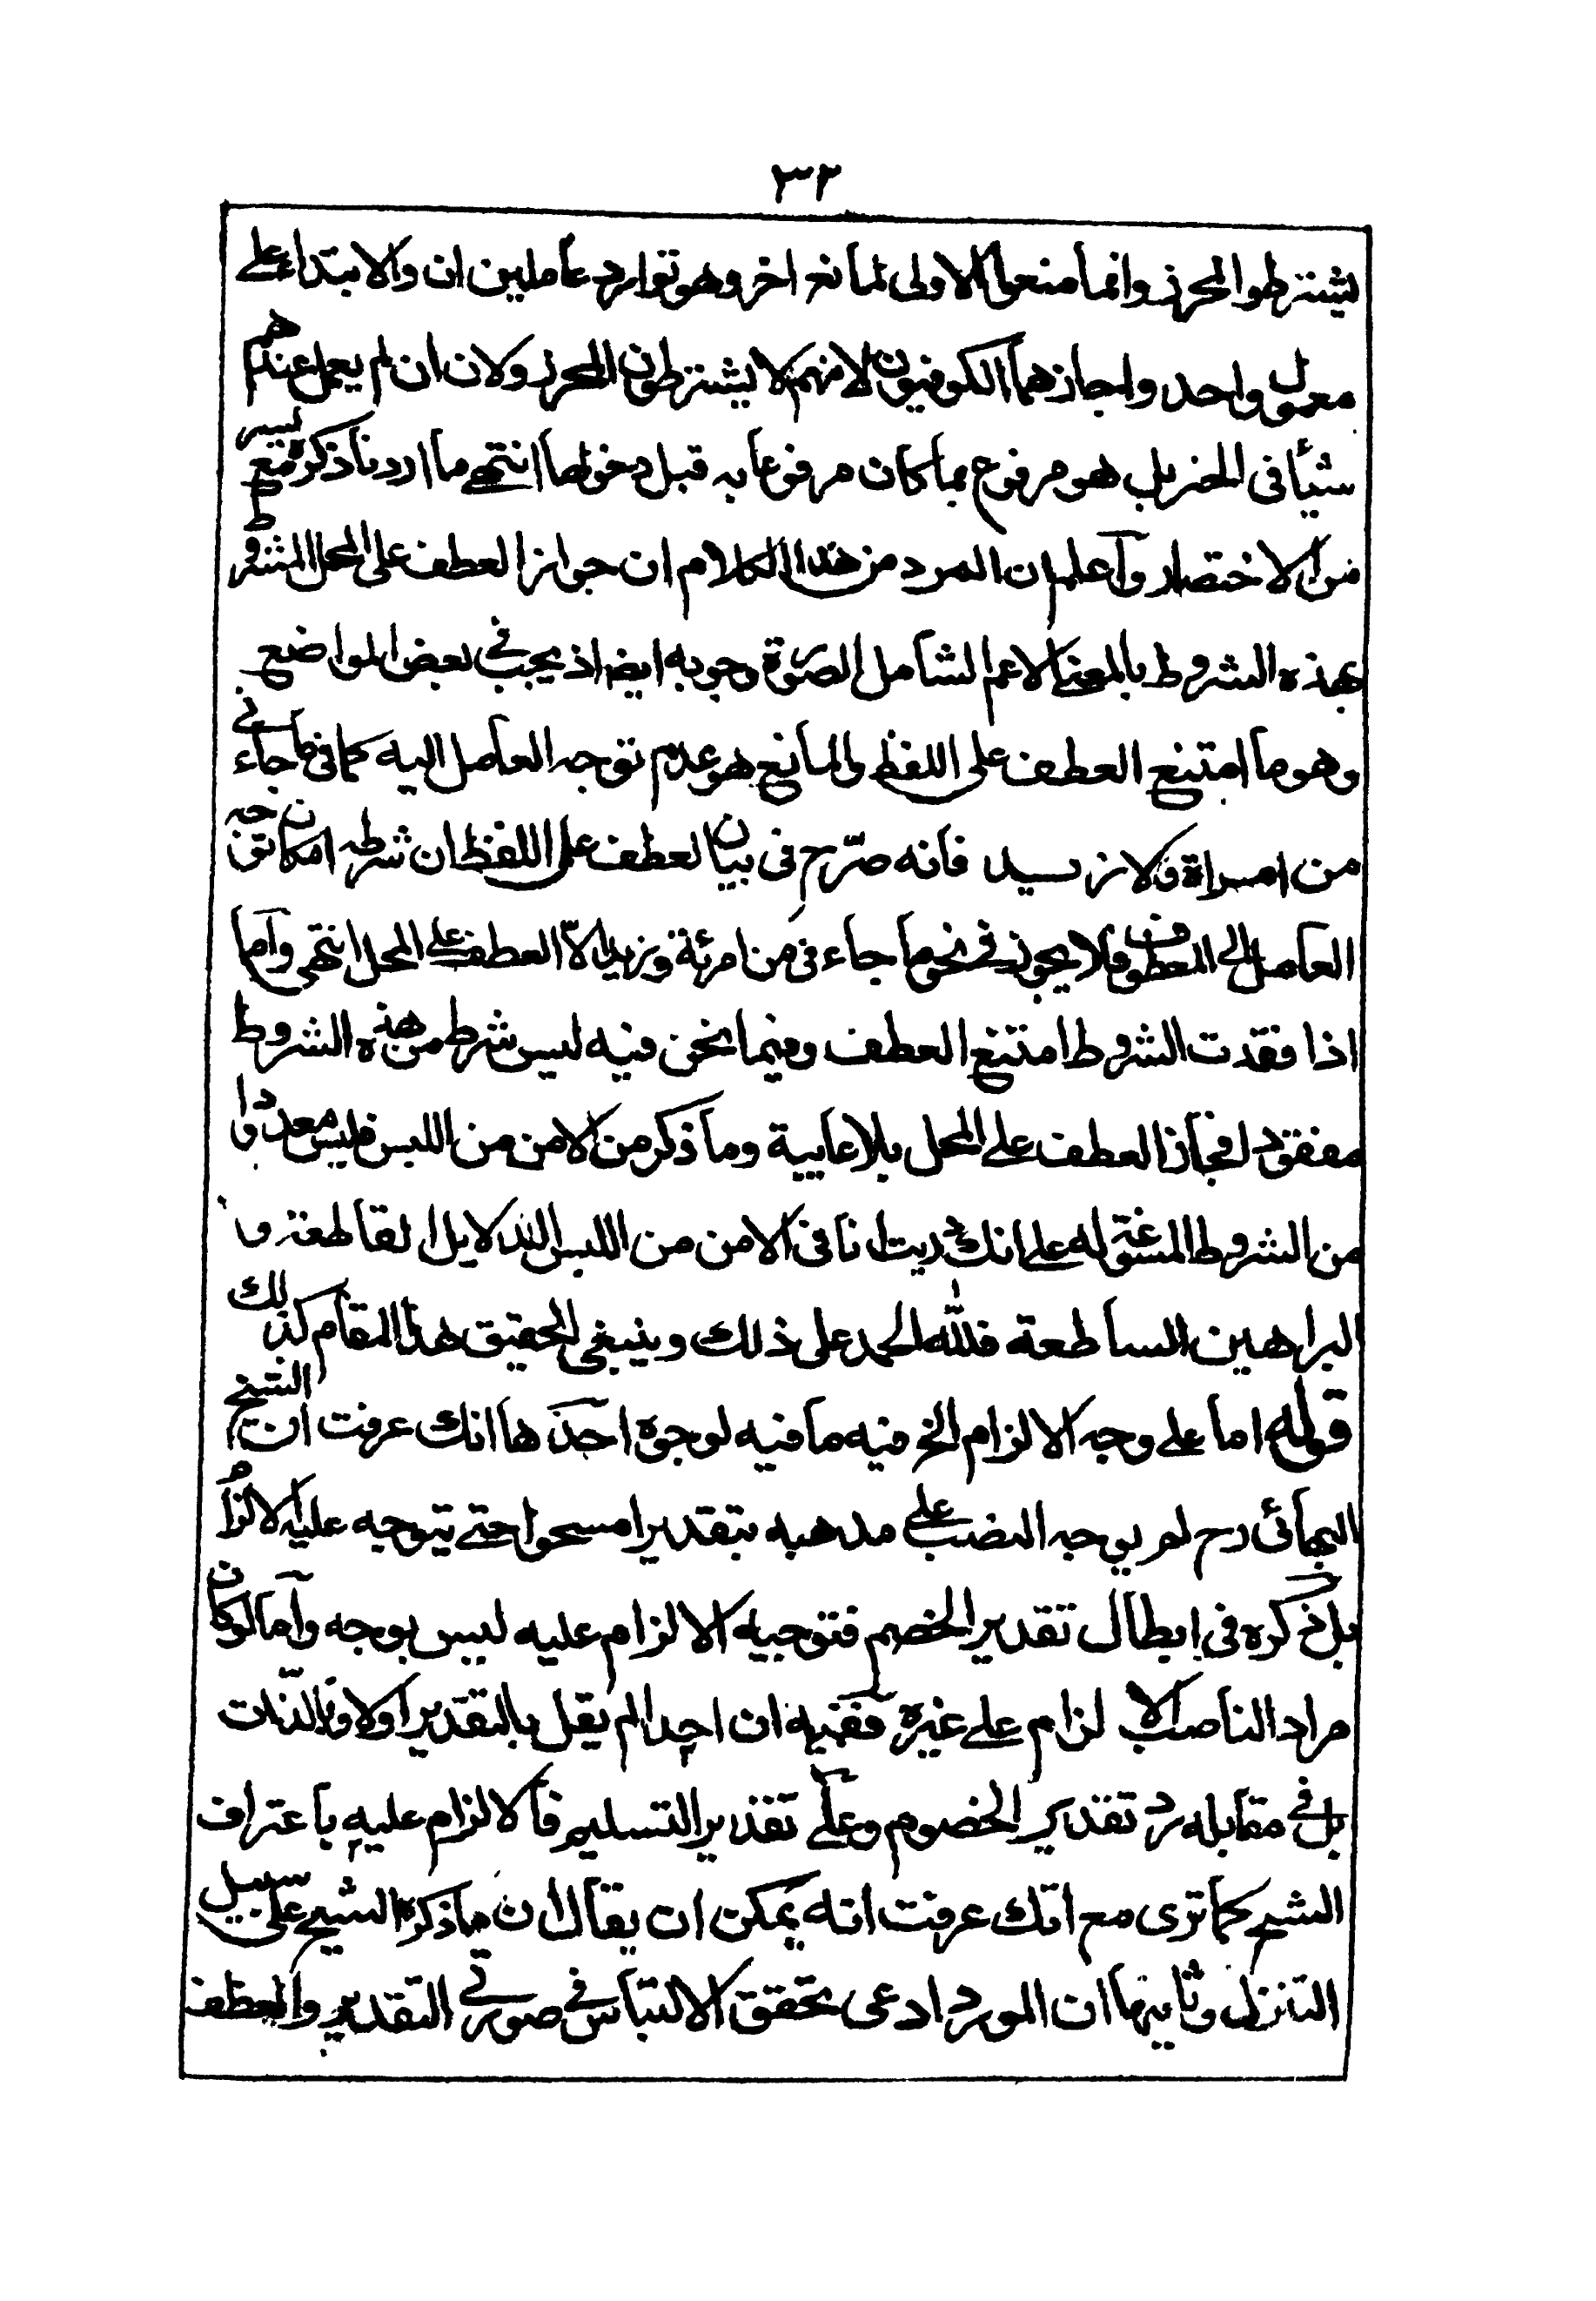 ٣٢
يشترطوا المحرز وانما منعوا الاولى لمانع اخر وهو توارد عاملين ان والابتداء على
معمول واحد واجازهما الكوفيون لانهم لا يشترطون المحرز ولان ان لم يعمل عندهم
شيأ فى الخبر بل هو مرفوع بما كان مرفوعا به قبل دخولها انتهى ما اردنا ذكره مع يسير
من الاختصار وآعلم ان المرد من هذا الكلام ان جواز العطف على المحل المشروط
بهذه الشروط بالمعنى الاعم الشامل الصورة وجوبه ايضا اذ يجب فى بعض المواضع
وهو ما امتنع العطف على اللفظ والمانع هو عدم توجه العامل اليه كما فى ما جاءنى
من امراة ولا زيد فانه صرّح فى بيان العطف على اللفظ ان شرطه امكان توجه
العامل الى المعطوف فلا يجوز فى نحو ما جاءنى من امرئة وزيد الّا العطف على المحل انتهى وآما
اذا فقدت الشروط امتنع العطف وفيما نحن فيه ليس شرط من هذه الشروط
مفقودا فجاز العطف على المحل بلا عايبة وما ذكر من الامن من اللبس فليس معدودا
من الشروط المسوغة له على انك دريت انا فى الامن من اللبس الدلايل القاطعة و
البراهين الساطعة فلله الحمد على ذلك وينبغى تحقيق هذا المقام كذلك
قوله اما على وجه الالزام الخ فيه ما فيه لوجوه احدها انك عرفت ان الشيخ
البهائى رح لم يوجه النصب على مذهبه بتقدير امسحوا حتى يتوجه عليه الالزام
بل ذكره فى ابطال تقدير الخصم فتوجيه الالزام عليه ليس بوجه وآما لو كان
مراد الناصب الالزام على غيره ففيه ان احدا لم يقل بالتقدير اولا وبالذّات
بل فى مقابله رد تقدير الخصوم وعلى تقدير التسليم فالالزام عليه باعتراف
الشيخ كما ترى مع انك عرفت انه يمكن ان يقال ان ما ذكره الشيخ على سبيل
التنزل وثانيها ان المورد ادعى تحقق الالتباس فى صورتى التقدير والعطف